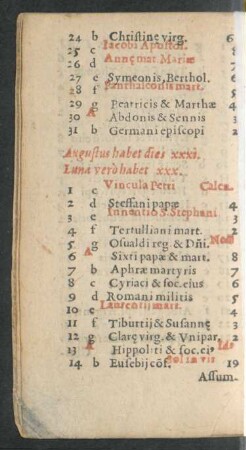 24 b Christinę virg. 6
25 c Iacobi Apostol.
26 d Annę mat Mariæ
27 e Symeonis, Berthol. 3
28 f Panthaleonis mart.
29 g Peatricis & Marthæ 4
30 A Abdonis & Sennis
31 b Germani episcopi 2
Augustus habet dies xxxi.
Luna verò habet xxx.
1 c Vincula Petri Calen.
2 d Steffani papæ 4
3 e Inuentio S. Stephani
4 f Tertulliani mart. 2
5 g Osualdi reg. & Dñi. Non
6 A Sixti papæ & mart. 8
7 b Aphræ martyris 7
8 c Cyriaci & soc. eius 6
9 d Romani militis 5
10 e Laurentij mart.
11 f Tiburtij & Susannę 3
12 g Clarę virg. & Vnipar, 2
13 A Hippoliti & soc. ei, Id,
14 b Eusebij cōf. Sol in vir 19
Assum.